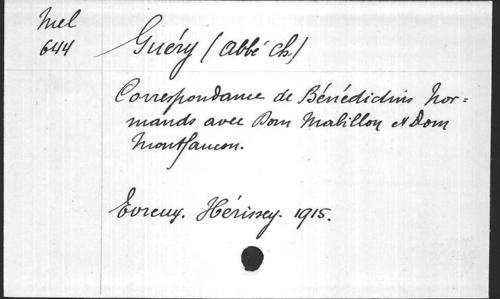 Mel
644
Guéry (Abbé Ch.)
Correspondance de Bénédictins Nor=
mands avec Dom Mabillon et Dom
Montfaucon.
Evreux. Hérissey. 1915.